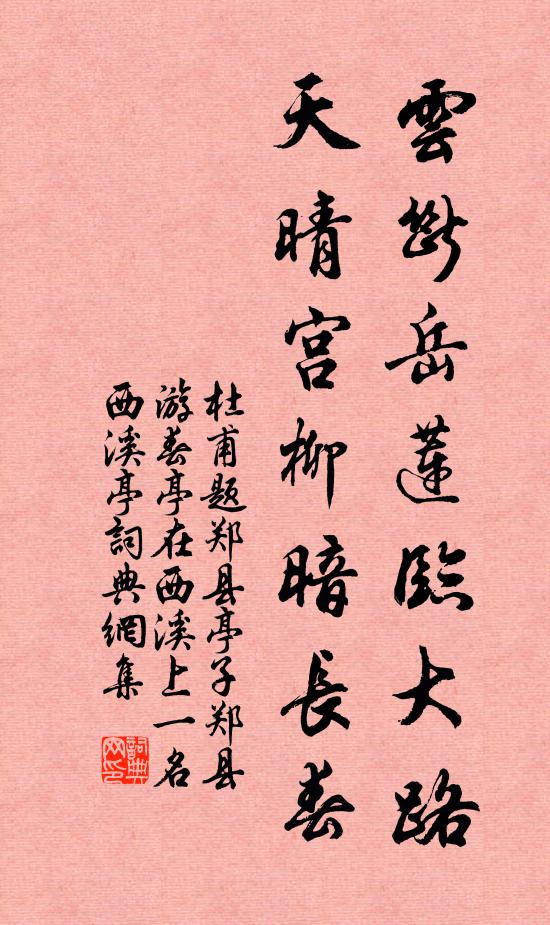 雲斷岳蓮臨大路
天晴宮柳暗長春
杜甫題郑县亭子郑县
游春亭在西溪上一名
西溪亭詞典網集
詞典网印